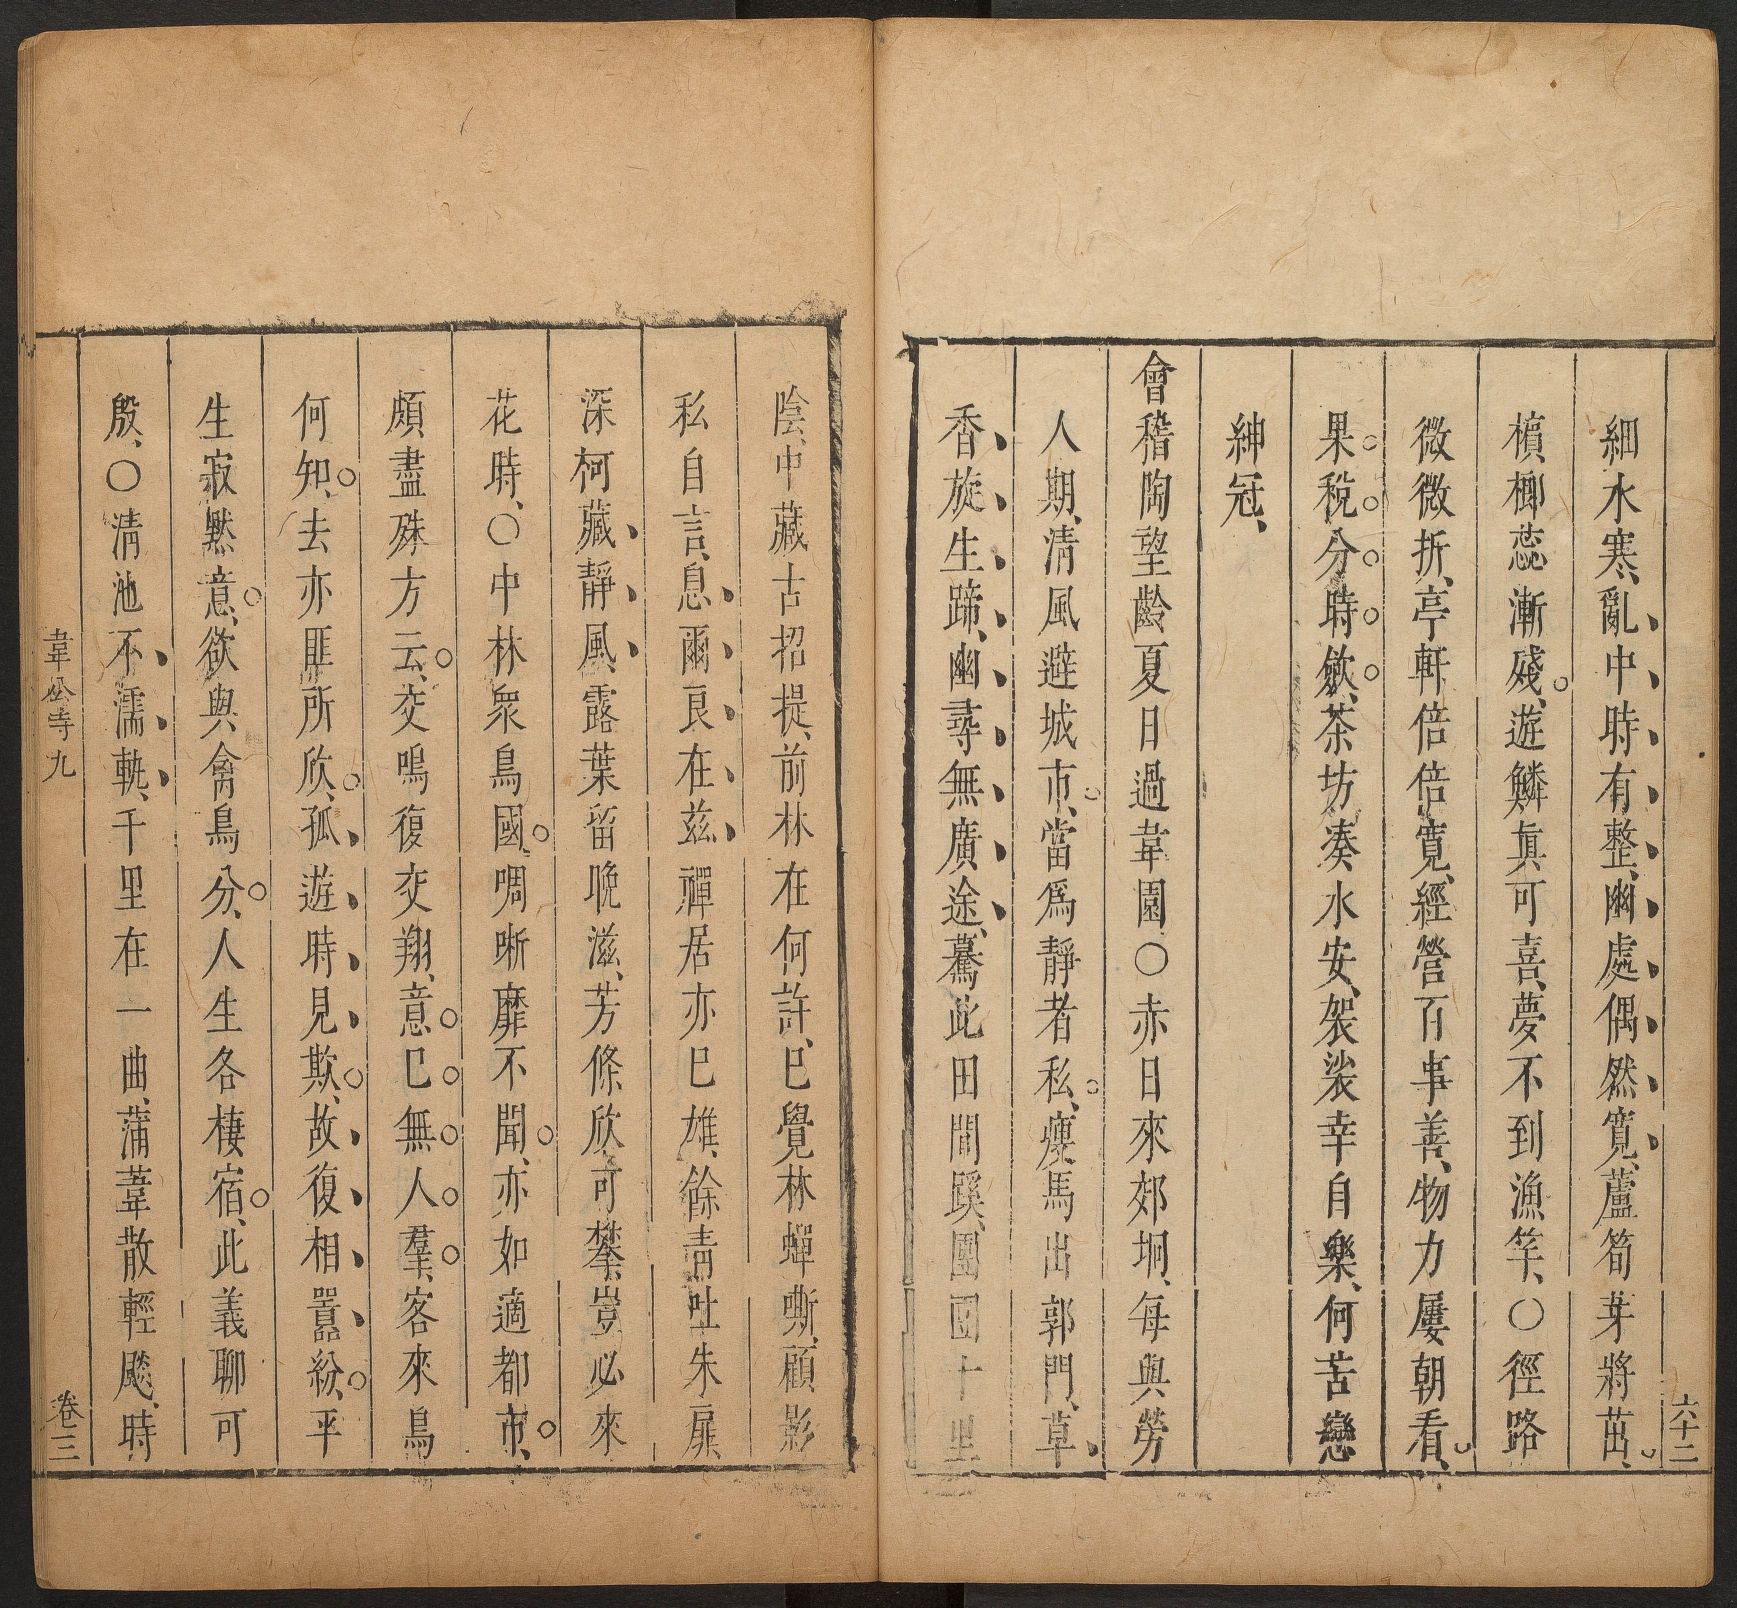 六十二
細水寒、亂中時有整、幽處偶然寬、蘆筍芽將茁、
檳榔蕊漸殘、遊鱗真可喜、夢不到漁竿、〇徑路
微微折、亭軒倍倍寬、經營百事善、物力屢朝看、
果稅分時斂、茶坊湊水安、袈裟幸自樂、何苦戀
紳冠、
會稽陶望齡夏日過韋園〇赤日來郊坰、每與勞
人期、清風避城市、當爲靜者私、瘦馬出郭門、草
香旋生蹄、幽尋無廣途、騖此田間蹊、團團十里
陰、中藏古招提、前林在何許、巳覺林蟬嘶、顧影
私自言、息爾良在茲、禪居亦巳雄、餘靑吐朱扉、
深柯藏靜風、露葉留晚滋、芳條欣可攀、豈必來
花時、〇中林衆鳥國、啁哳靡不聞、亦如適都市、
頗盡殊方云、交鳴復交翔、意巳無人羣、客來鳥
何知、去亦匪所欣、孤遊時見欺、故復相囂紛、平
生寂黙意、欲與禽鳥分、人生各棲宿、此義聊可
殷、〇清池不濡軌、千里在一曲、蒲葦散輕颸、時
韋公寺 九
卷三